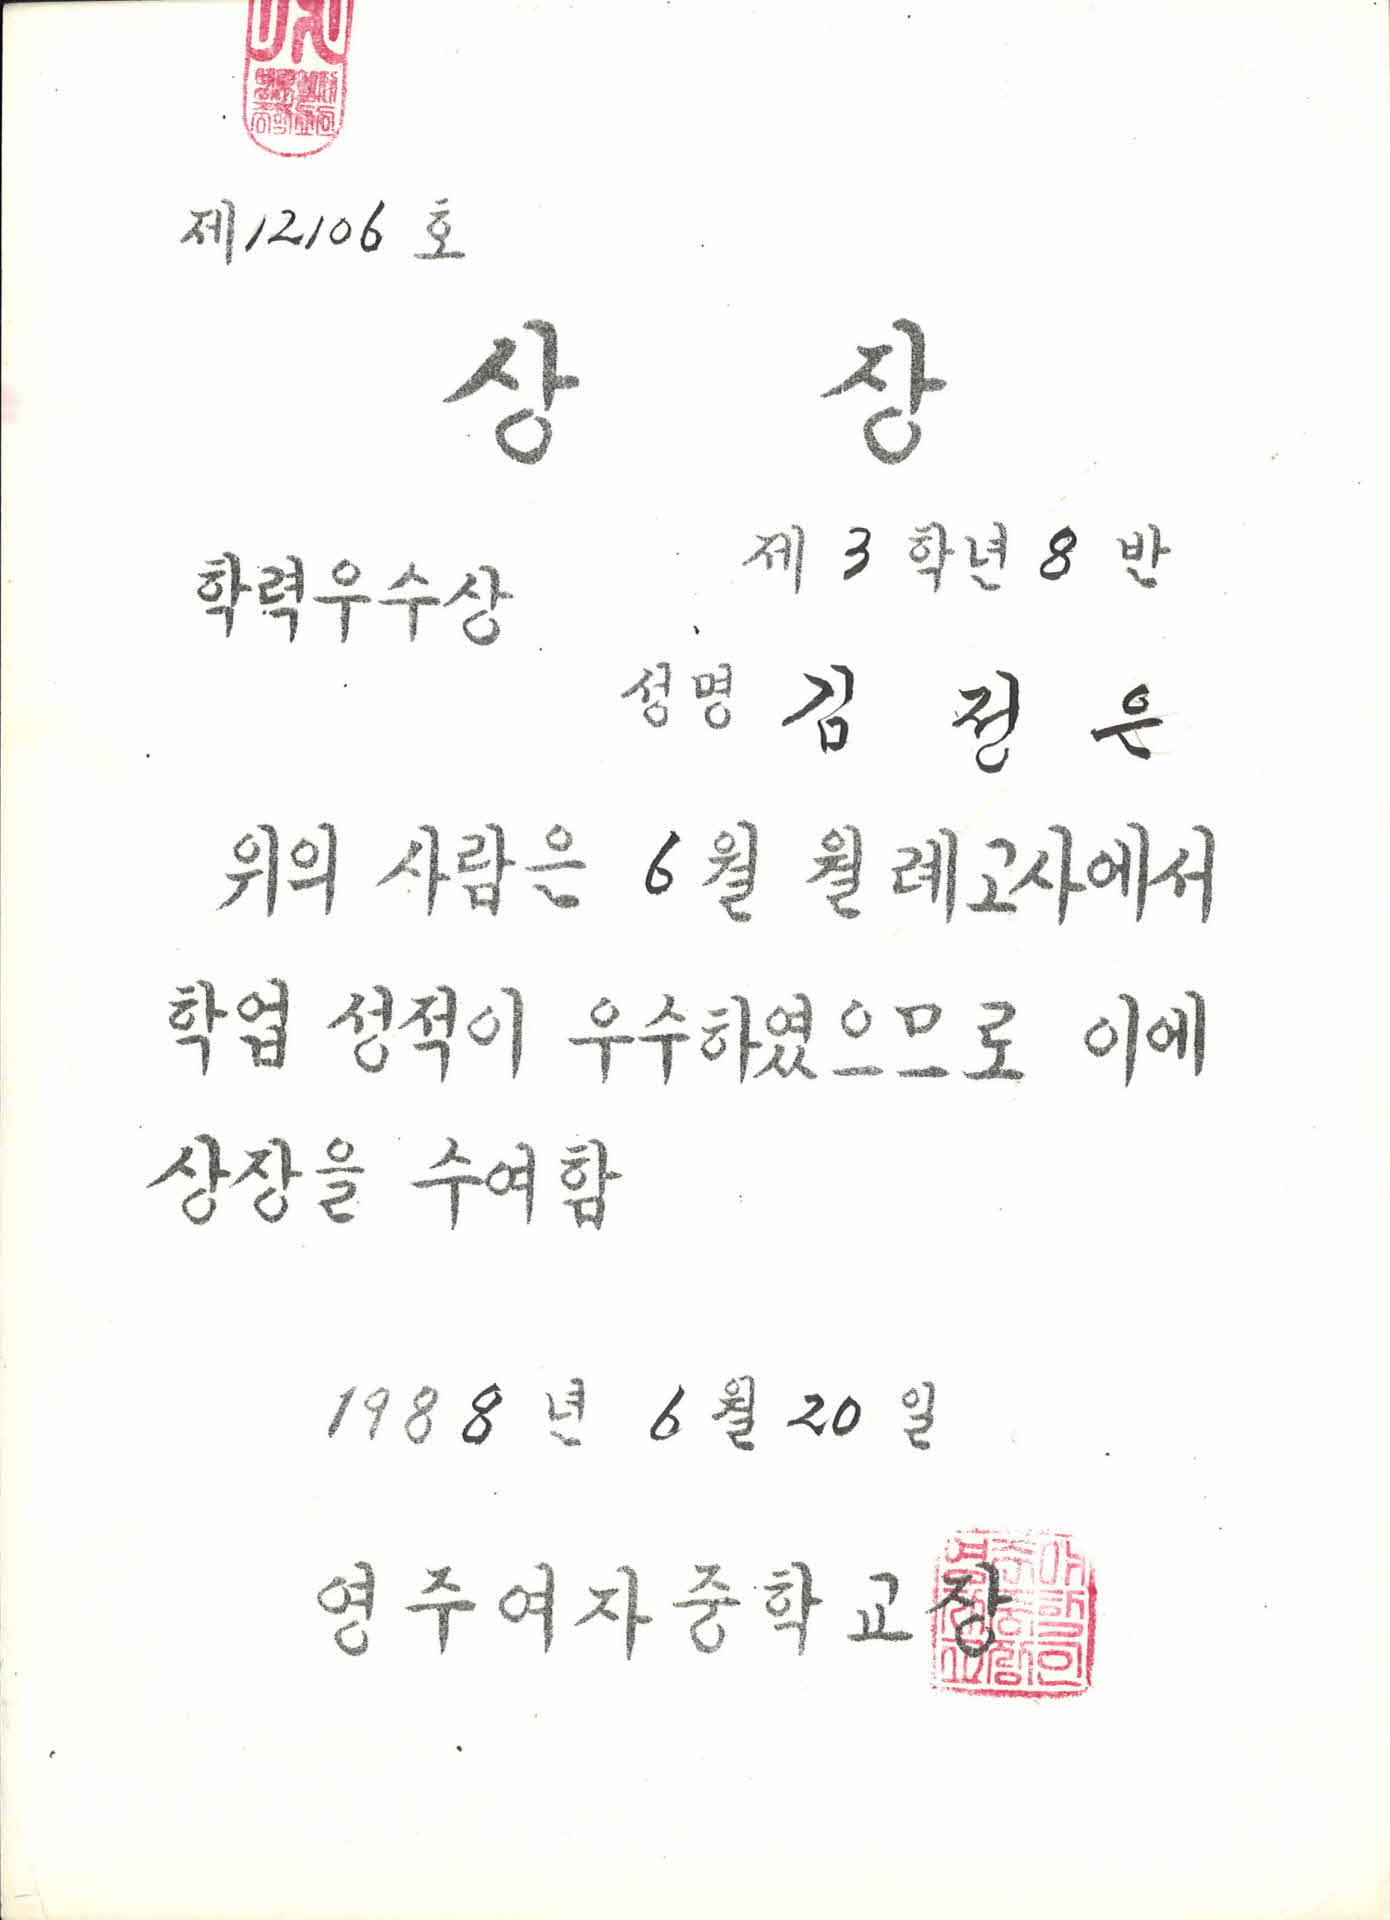 제12106 호
상 장
제 3 학년 8 반
학력우수상
성명 김 정 은
위의 사람은 6월 월례고사에서
학업 성적이 우수하였으므로 이에
상장을 수여함
1988 년 6월 20 일
영주여자중학교장